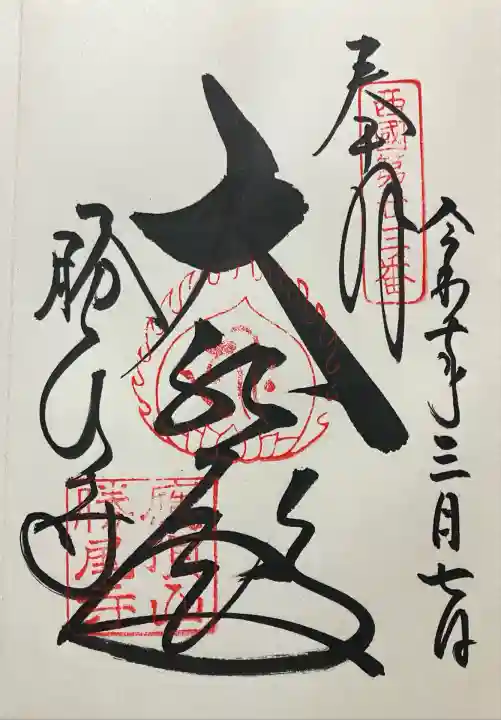 奉拝
西國第廿三番
令和 年三月七日
大悲殿
勝尾寺
應頂山
勝尾寺